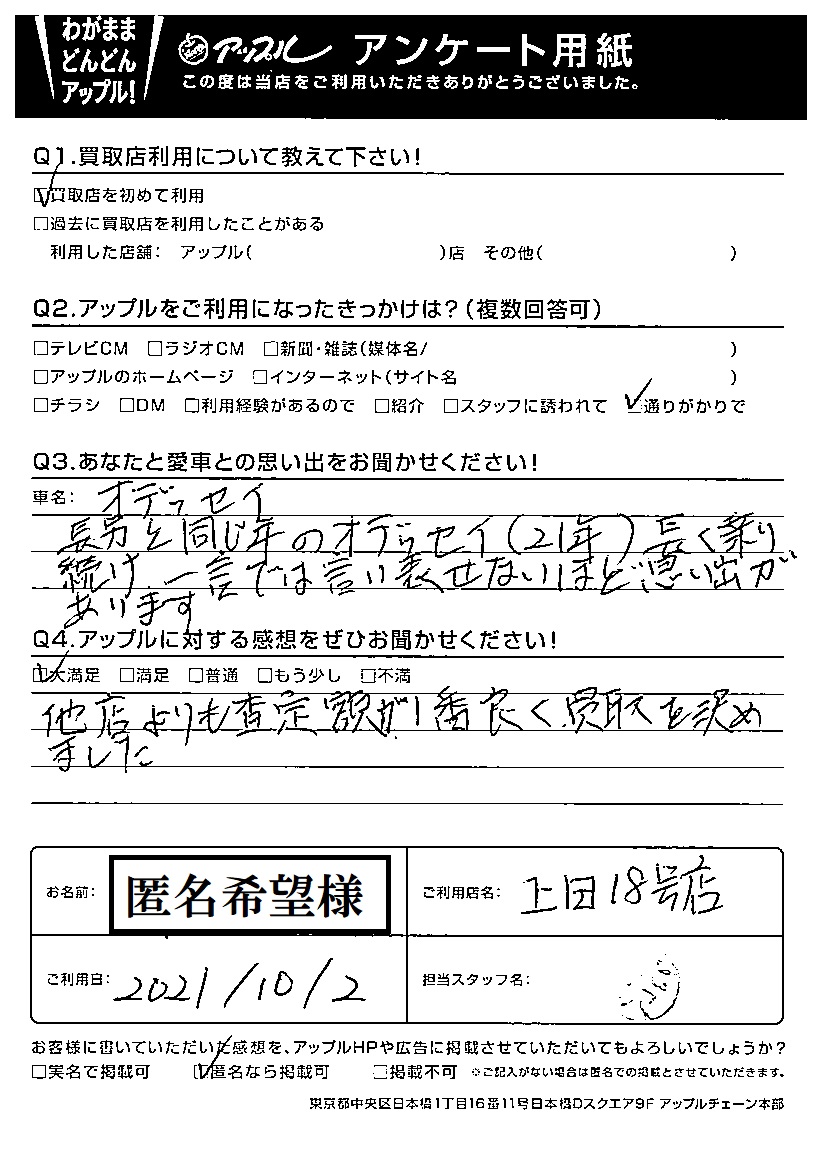 わがまま
どんどん
アップル!
アップル アンケート用紙
この度は当店をご利用いただきありがとうございました。
Q1.買取店利用について教えて下さい!
☑買取店を初めて利用
□過去に買取店を利用したことがある
利用した店舗: アップル( )店 その他( )
Q2.アップルをご利用になったきっかけは?(複数回答可)
□テレビCM □ラジオCM □新聞・雑誌(媒体名/ )
□アップルのホームページ □インターネット(サイト名 )
□チラシ □DM □利用経験があるので □紹介 □スタッフに誘われて ☑通りがかりで
Q3.あなたと愛車との思い出をお聞かせください!
車名: オデッセイ
長男と同じ年のオデッセイ(21年)長く乗り
続け、一言では言い表せないほど思い出が
あります
Q4.アップルに対する感想をぜひお聞かせください!
☑大満足 □満足 □普通 □もう少し □不満
他店よりも査定額が1番良く、買取を決め
ました
お名前: 匿名希望様
ご利用店名: 上田18号店
ご利用日: 2021/10/2
担当スタッフ名:
お客様に書いていただいた感想を、アップルHPや広告に掲載させていただいてもよろしいでしょうか?
□実名で掲載可 ☑匿名なら掲載可 □掲載不可 ※ご記入がない場合は匿名での掲載とさせていただきます。
東京都中央区日本橋1丁目16番11号日本橋Dスクエア9F アップルチェーン本部